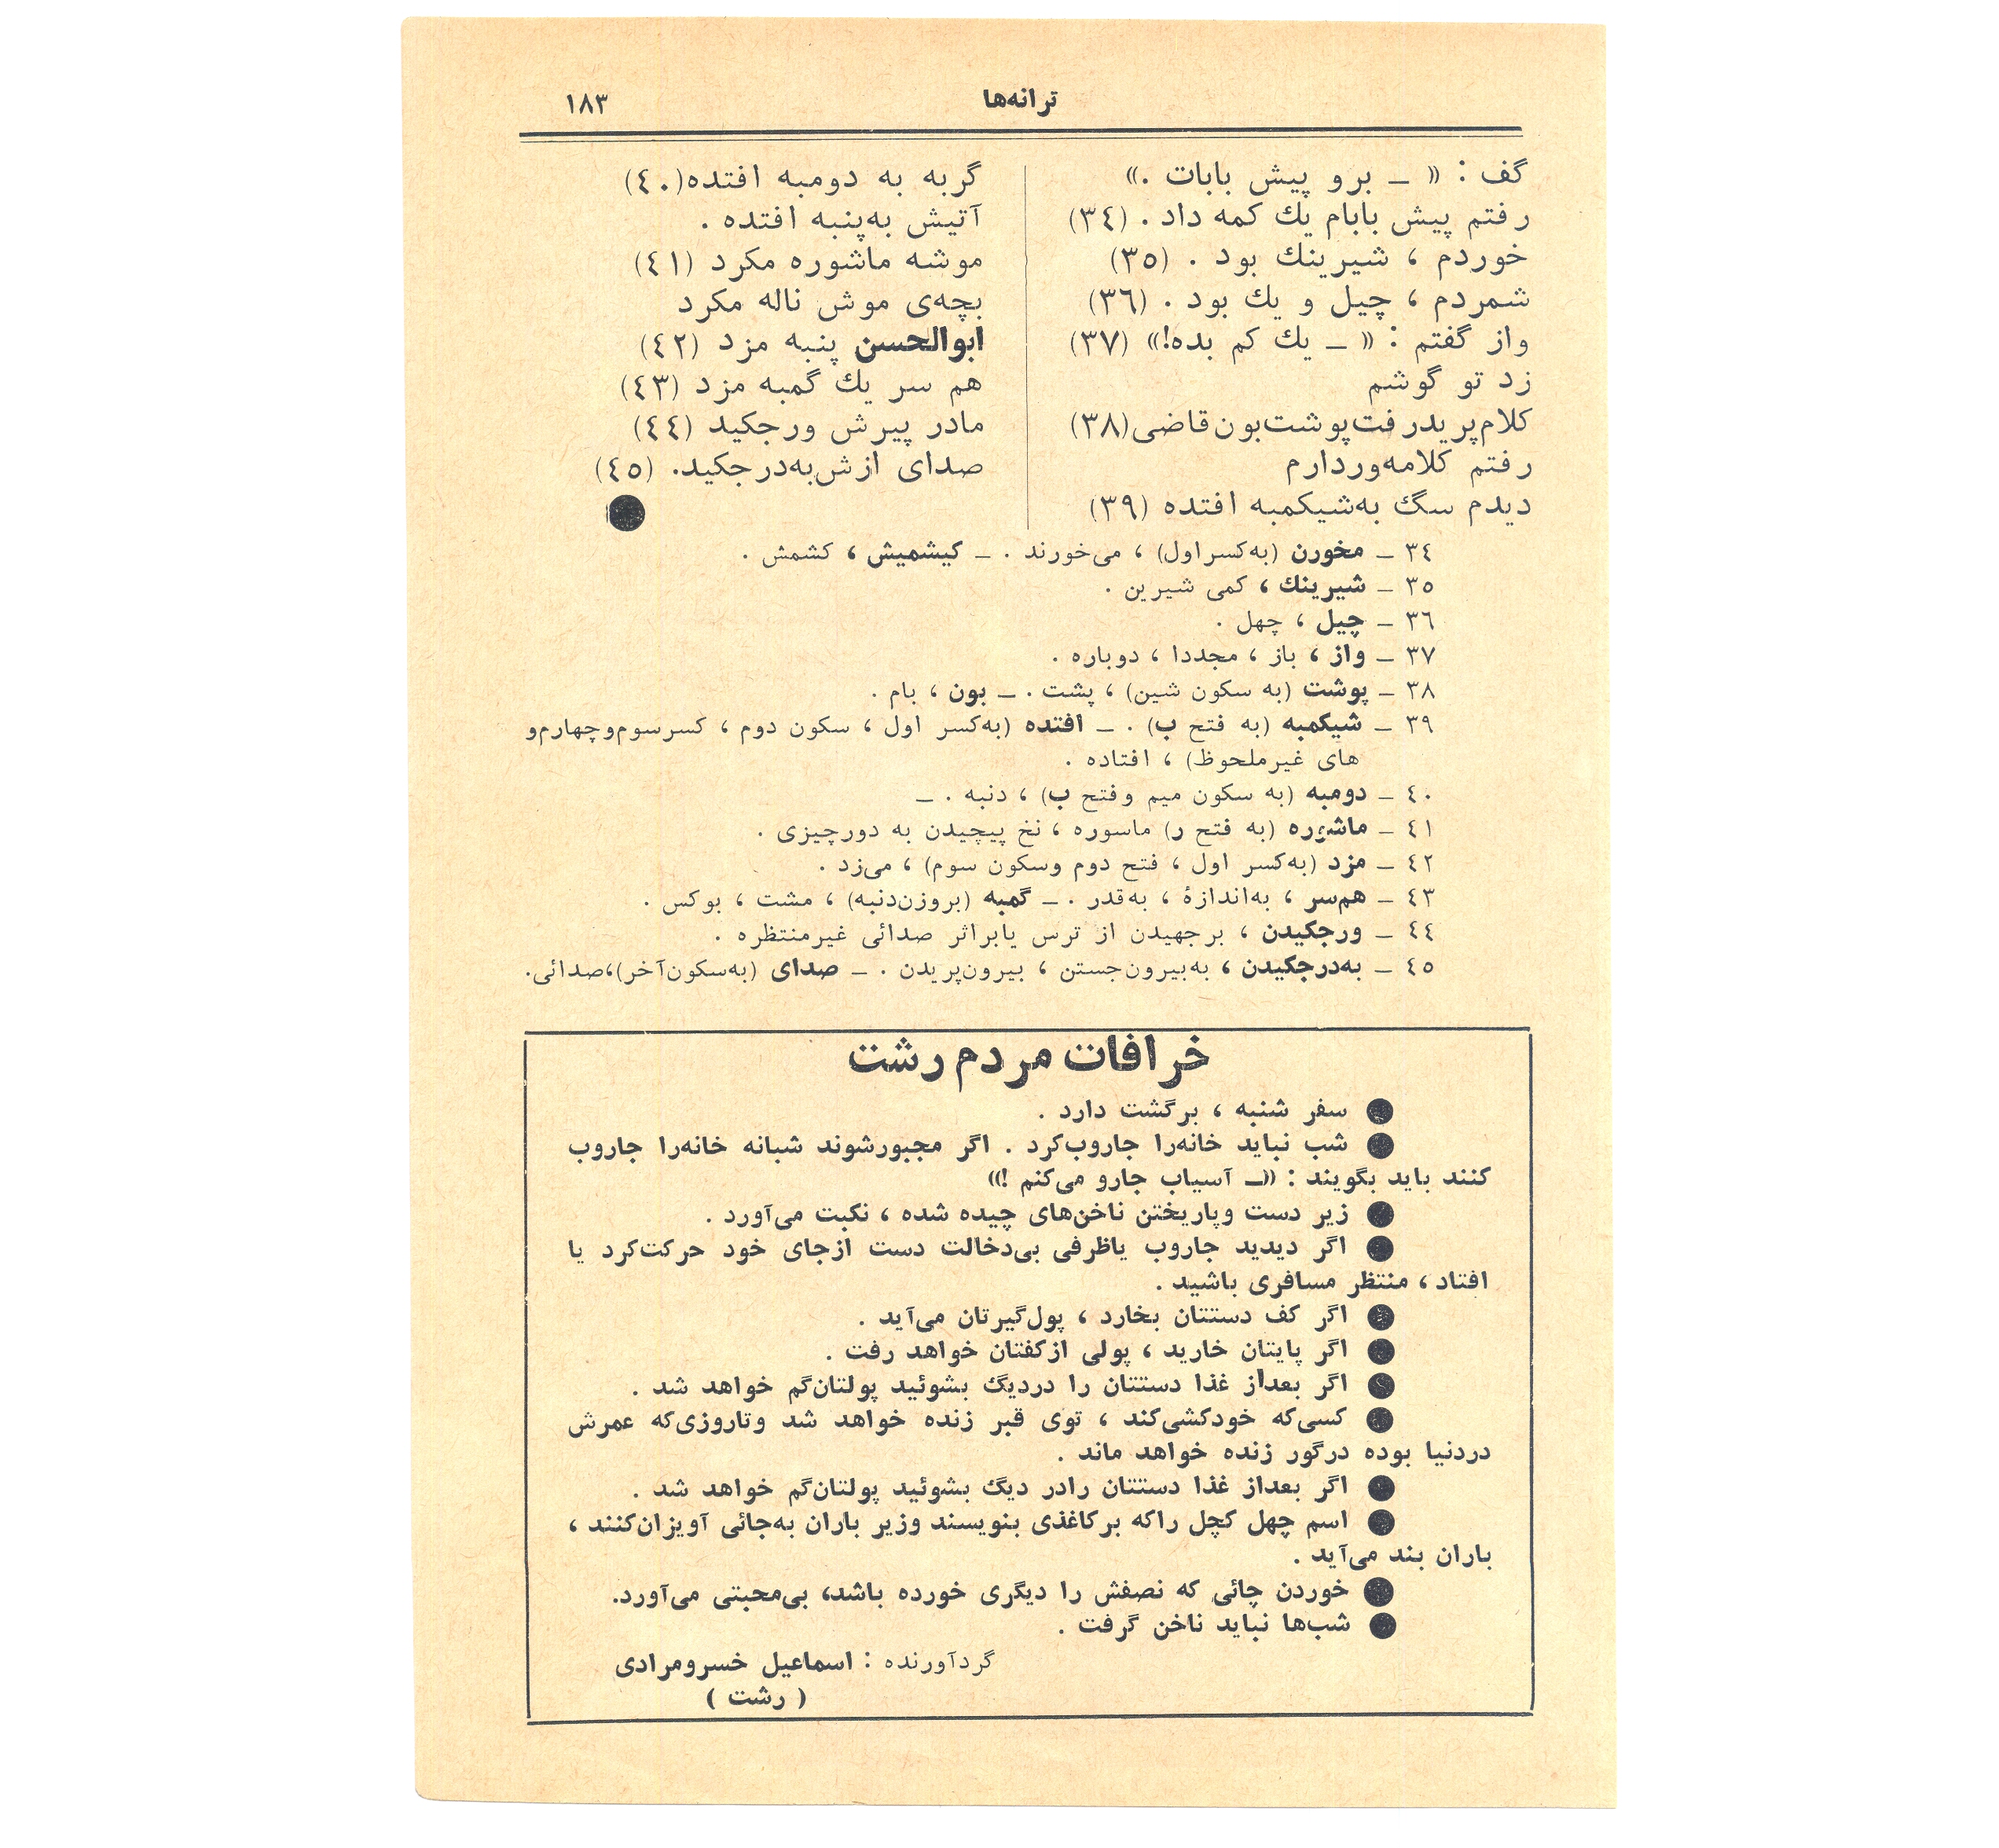 ترانه‌ها
۱۸۳
گف : « ــ برو پیش بابات .»
رفتم پیش بابام یك کمه داد . (٣٤)
خوردم ، شیرینك بود . (٣٥)
شمردم ، چیل و یك بود . (٣٦)
واز گفتم : « ــ یك کم بده!» (٣٧)
زد تو گوشم
کلام‌پریدرفت‌پوشت‌بون‌قاضی(٣٨)
رفتم کلامه‌وردارم
دیدم سگ به‌شیکمبه افتده (٣٩)
گربه به دومبه افتده(٤٠)
آتیش به‌پنبه افتده .
موشه ماشوره مکرد (٤١)
بچه‌ی موش ناله مکرد
ابوالحسن پنبه مزد (٤٢)
هم سر یك گمبه مزد (٤٣)
مادر پیرش ورجکید (٤٤)
صدای ازش‌به‌درجکید. (٤٥)
٣٤ ــ مخورن (به‌کسراول) ، می‌خورند . ــ کیشمیش ، کشمش .
٣٥ ــ شیرینك ، کمی شیرین .
٣٦ ــ چیل ، چهل .
٣٧ ــ واز ، باز ، مجددا ، دوباره .
٣٨ ــ پوشت (به سکون شین) ، پشت . ــ بون ، بام .
٣٩ ــ شیکمبه (به فتح ب) . ــ افتده (به‌کسر اول ، سکون دوم ، کسرسوم‌وچهارم‌و
های غیرملحوظ) ، افتاده .
٤٠ ــ دومبه (به سکون میم وفتح ب) ، دنبه . ــ
٤١ ــ ماشوره (به فتح ر) ماسوره ، نخ پیچیدن به دورچیزی .
٤٢ ــ مزد (به‌کسر اول ، فتح دوم وسکون سوم) ، می‌زد .
٤٣ ــ هم‌سر ، به‌اندازهٔ ، به‌قدر . ــ گمبه (بروزن‌دنبه) ، مشت ، بوکس .
٤٤ ــ ورجکیدن ، برجهیدن از ترس یابراثر صدائی غیرمنتظره .
٤٥ ــ به‌درجکیدن ، به‌بیرون‌جستن ، بیرون‌پریدن . ــ صدای (به‌سکون‌آخر)،صدائی.
خرافات مردم رشت
● سفر شنبه ، برگشت دارد .
● شب نباید خانه‌را جاروب‌کرد . اگر مجبورشوند شبانه خانه‌را جاروب
کنند باید بگویند : «ــ آسیاب جارو می‌کنم !»
● زیر دست وپاریختن ناخن‌های چیده شده ، نکبت می‌آورد .
● اگر دیدید جاروب یاظرفی بی‌دخالت دست ازجای خود حرکت‌کرد یا
افتاد ، منتظر مسافری باشید .
● اگر کف دستتان بخارد ، پول‌گیرتان می‌آید .
● اگر پایتان خارید ، پولی ازکفتان خواهد رفت .
● اگر بعداز غذا دستتان را دردیگ بشوئید پولتان‌گم خواهد شد .
● کسی‌که خودکشی‌کند ، توی قبر زنده خواهد شد وتاروزی‌که عمرش
دردنیا بوده درگور زنده خواهد ماند .
● اگر بعداز غذا دستتان رادر دیگ بشوئید پولتان‌گم خواهد شد .
● اسم چهل کچل راکه برکاغذی بنویسند وزیر باران به‌جائی آویزان‌کنند ،
باران بند می‌آید .
● خوردن چائی که نصفش را دیگری خورده باشد، بی‌محبتی می‌آورد.
● شب‌ها نباید ناخن گرفت .
گردآورنده : اسماعیل خسرومرادی
( رشت )